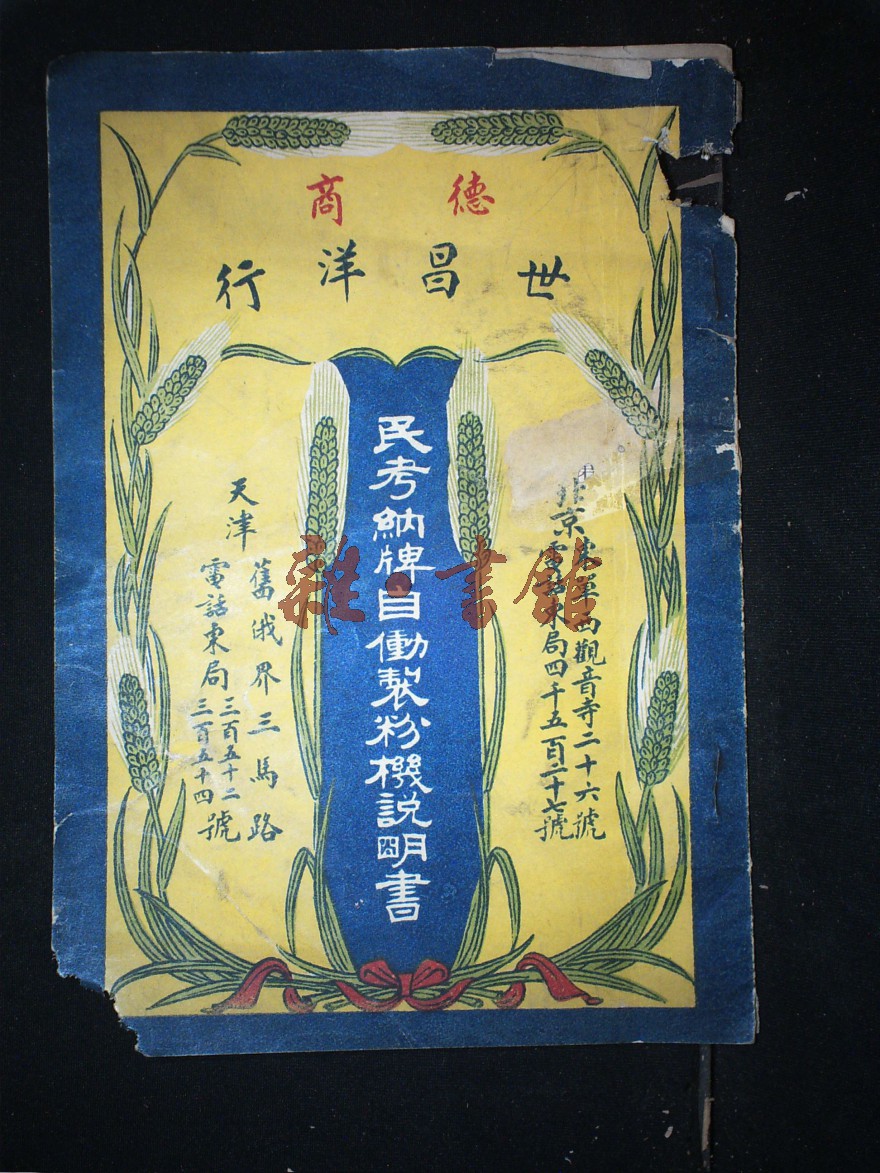 德商
世昌洋行
北京
東單西觀音寺二十六號
電話東局四千五百二十七號
民考納牌自働製粉機説明書
天津
舊俄界三馬路
電話東局三百五十二
三百五十四號
雜·書館